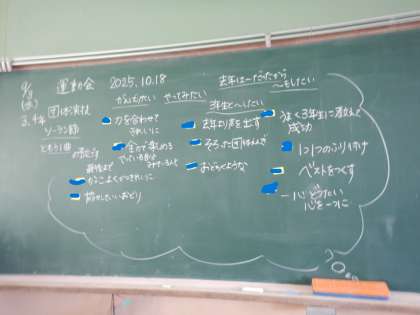 9/3 運動会 2025.10.18
(水)
去年は〜だったから
〜もしたい
3.4年 団体演技
がんばりたい やってみたい
3年生と〜したい
ソーラン節
ともう1曲
力を合わせて
きれいに
全力で楽しめる
最後まで
かっこよくかつきれいに
去年より声を出す
そろった団体
おどろくような
うまく3年生に教えて
成功
1つ1つのふり付け
ベストをつくす
一心どうたい
心を一つに